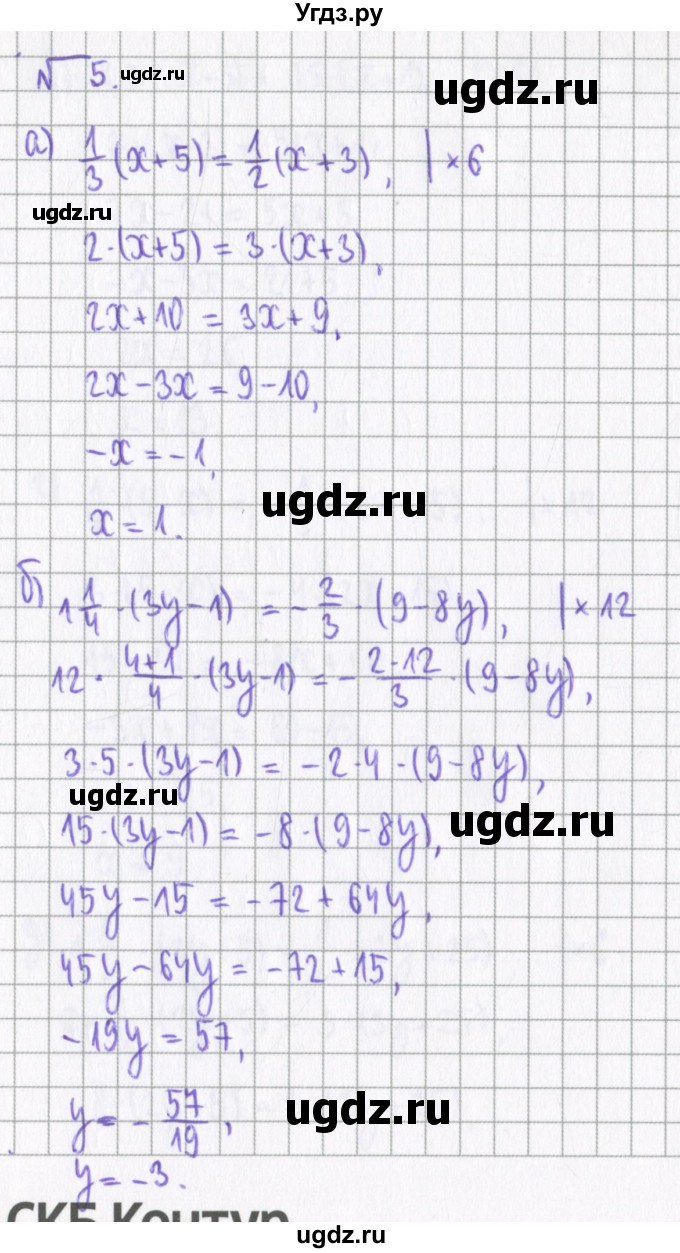 Угдз.ру
№5. ugdz.ru
ugdz.ru
а) 1/3 (x+5) = 1/2 (x+3), | × 6
ugdz.ru
2·(x+5) = 3·(x+3),
2x+10 = 3x+9,
2x-3x = 9-10,
-x = -1,
ugdz.ru
x = 1.
б) 1 1/4 ·(3y-1) = - 2/3 ·(9-8y), | × 12
12 · (4+1)/4 ·(3y-1) = - (2·12)/3 ·(9-8y),
3·5·(3y-1) = -2·4·(9-8y),
ugdz.ru
ugdz.ru
15·(3y-1) = -8·(9-8y),
45y-15 = -72+64y,
45y-64y = -72+15,
-19y = 57,
y = - 57/19,
ugdz.ru
y = -3.
СКБ Контур
ugdz.ru